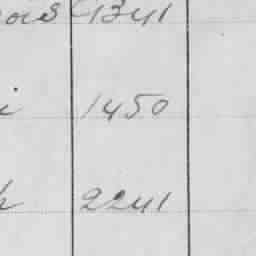 1341
i 1450
h 2241